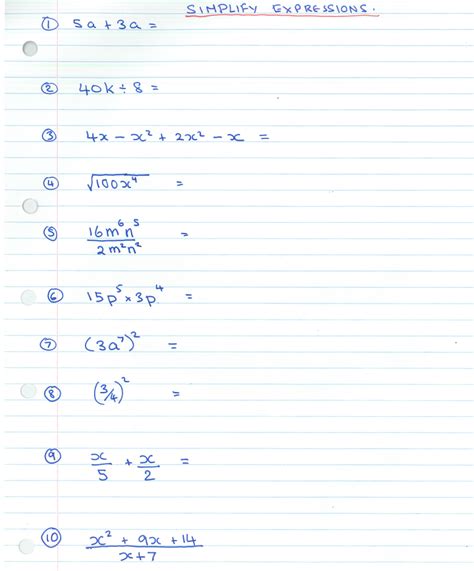 SIMPLIFY EXPRESSIONS.
① 5a + 3a =
② 40k ÷ 8 =
③ 4x - x² + 2x² - x =
④ √100x⁴ =
⑤ 16m⁶n⁵ / 2m²n² =
⑥ 15p⁵ × 3p⁴ =
⑦ (3a⁷)² =
⑧ (3/4)² =
⑨ x/5 + x/2 =
⑩ x² + 9x + 14 / x + 7